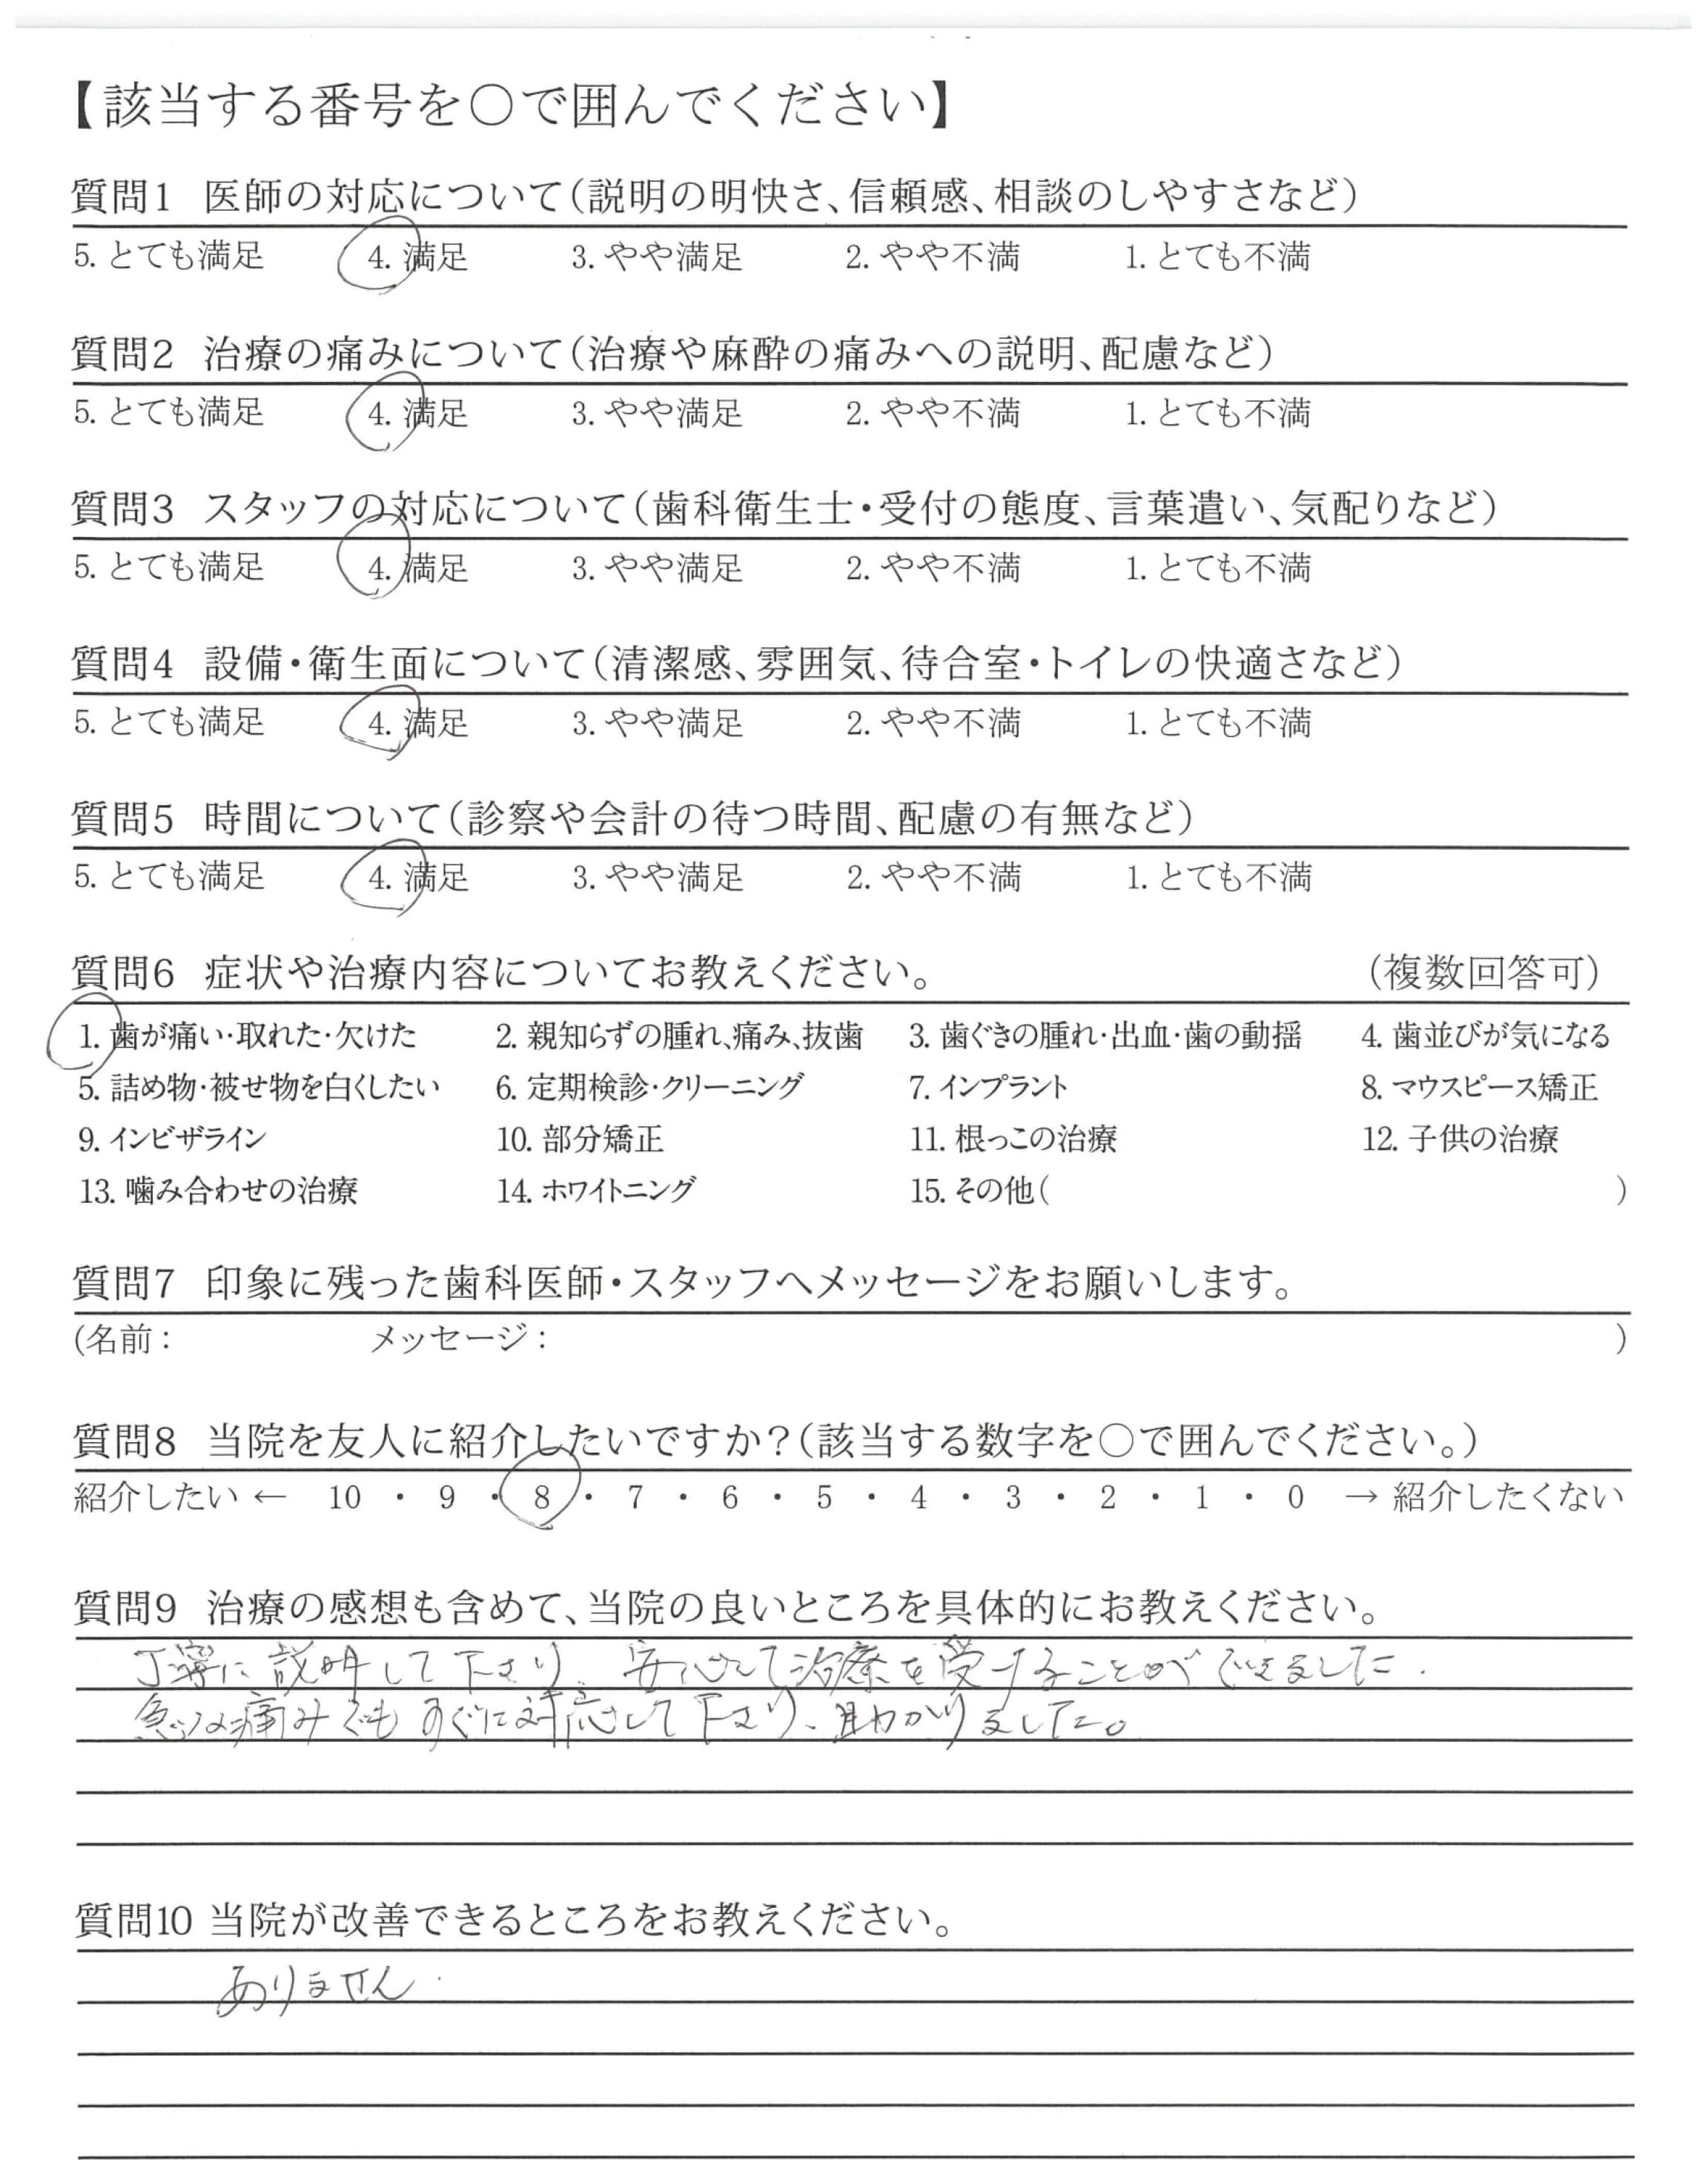 【該当する番号を○で囲んでください】
質問1 医師の対応について（説明の明快さ、信頼感、相談のしやすさなど）
5. とても満足 4. 満足 3. やや満足 2. やや不満 1. とても不満
質問2 治療の痛みについて（治療や麻酔の痛みへの説明、配慮など）
5. とても満足 4. 満足 3. やや満足 2. やや不満 1. とても不満
質問3 スタッフの対応について（歯科衛生士・受付の態度、言葉遣い、気配りなど）
5. とても満足 4. 満足 3. やや満足 2. やや不満 1. とても不満
質問4 設備・衛生面について（清潔感、雰囲気、待合室・トイレの快適さなど）
5. とても満足 4. 満足 3. やや満足 2. やや不満 1. とても不満
質問5 時間について（診察や会計の待つ時間、配慮の有無など）
5. とても満足 4. 満足 3. やや満足 2. やや不満 1. とても不満
質問6 症状や治療内容についてお教えください。 （複数回答可）
1. 歯が痛い・取れた・欠けた 2. 親知らずの腫れ、痛み、抜歯 3. 歯ぐきの腫れ・出血・歯の動揺 4. 歯並びが気になる
5. 詰め物・被せ物を白くしたい 6. 定期検診・クリーニング 7. インプラント 8. マウスピース矯正
9. インビザライン 10. 部分矯正 11. 根っこの治療 12. 子供の治療
13. 噛み合わせの治療 14. ホワイトニング 15. その他（ ）
質問7 印象に残った歯科医師・スタッフへメッセージをお願いします。
(名前： メッセージ： )
質問8 当院を友人に紹介したいですか？（該当する数字を○で囲んでください。）
紹介したい ← 10 ・ 9 ・ 8 ・ 7 ・ 6 ・ 5 ・ 4 ・ 3 ・ 2 ・ 1 ・ 0 → 紹介したくない
質問9 治療の感想も含めて、当院の良いところを具体的にお教えください。
丁寧に説明して下さり、安心して治療を受けることができました.
急な痛みでもすぐに対応して下さり、助かりました。
質問10 当院が改善できるところをお教えください。
ありません.